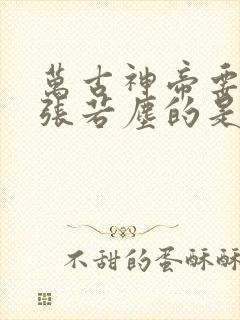 萬古神帝要
張若塵的是
不甜的蛋酥酥